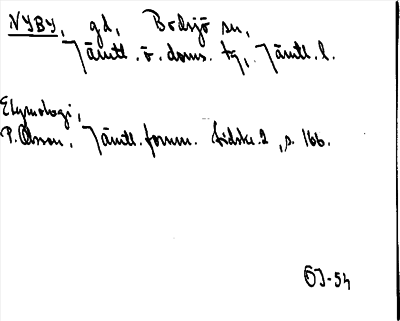 NYBY, gd, Bodsjö sn,
Jämtl. ö. doms. tg, Jämtl. l.
Etymologi,
P. Olsson, Jämtl. fornm. tidskr. 2, s. 166.
ÖJ-54